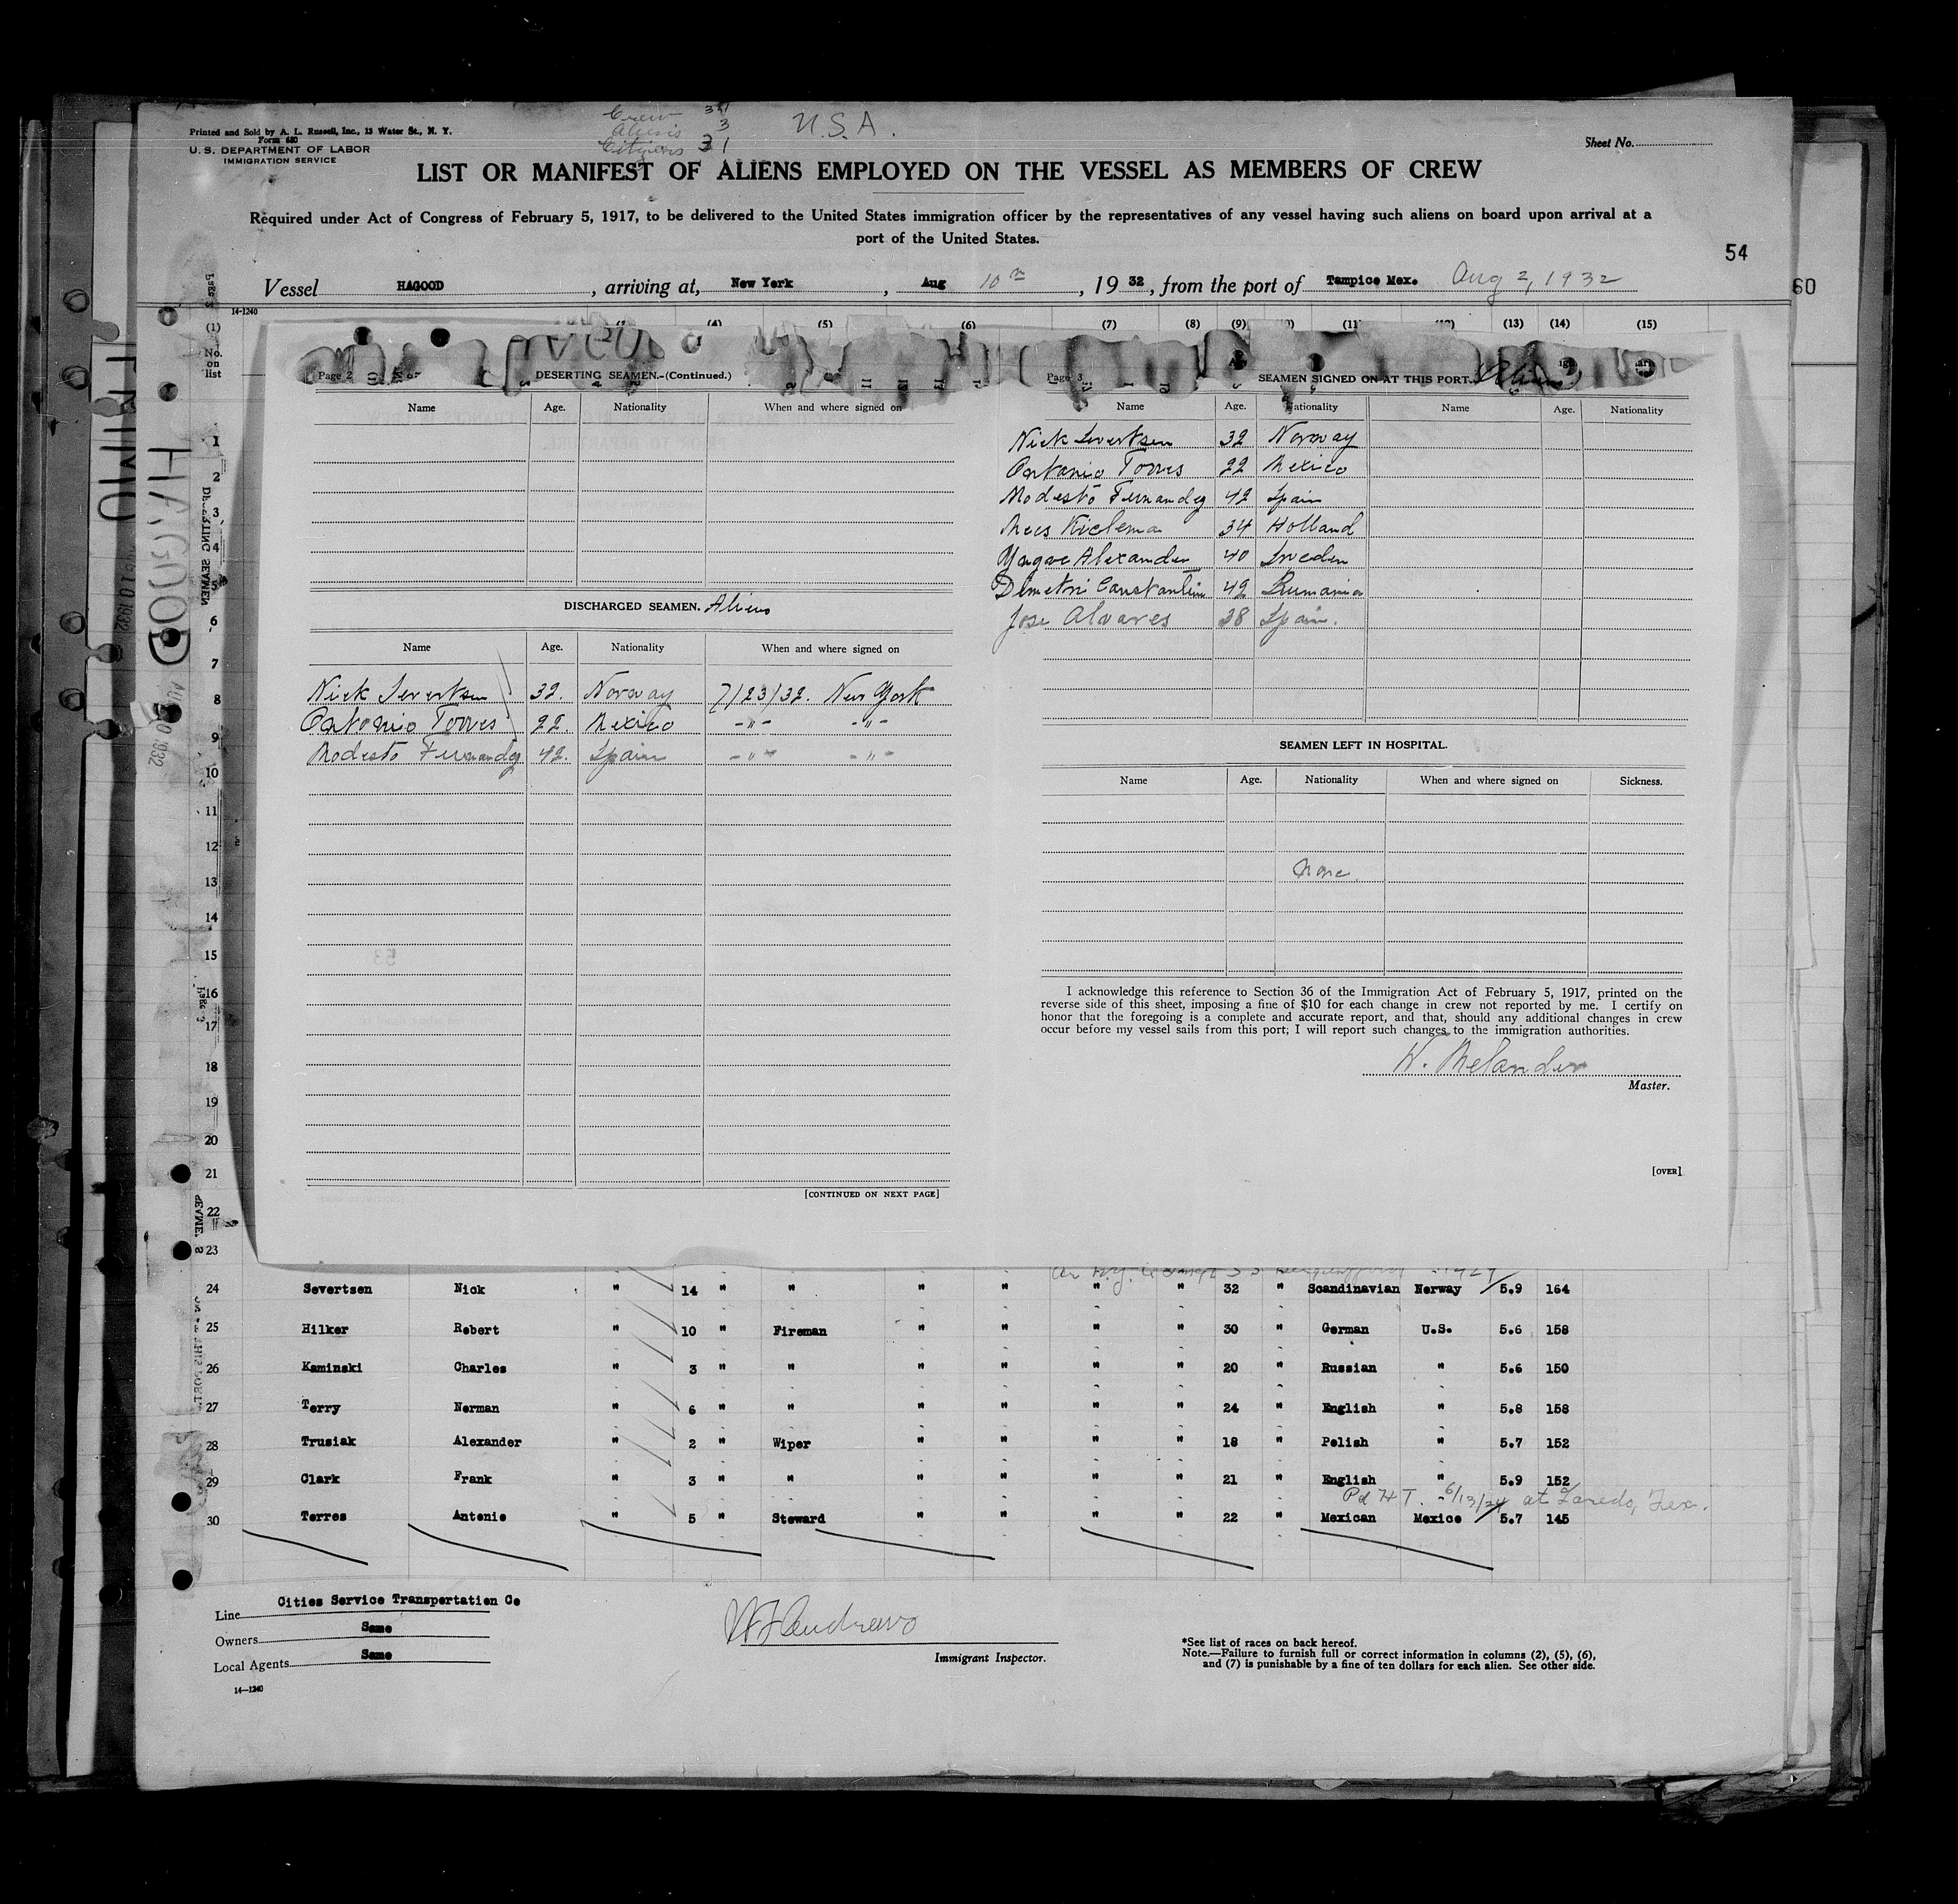 Crew
Aliens 3
Citizens 31
U.S.A.
Printed and Sold by A. L. Russell, Inc., 13 Water St., N. Y.
Form 680
U. S. DEPARTMENT OF LABOR
IMMIGRATION SERVICE
Sheet No.
LIST OR MANIFEST OF ALIENS EMPLOYED ON THE VESSEL AS MEMBERS OF CREW
Required under Act of Congress of February 5, 1917, to be delivered to the United States immigration officer by the representatives of any vessel having such aliens on board upon arrival at a
port of the United States.
54
Vessel HAGOOD, arriving at, New York, Aug 10th, 1932, from the port of Tampico Mex. Aug 2, 1932
60
14-1240
(1) (4) (5) (6) (7) (8) (9) (11) (13) (14) (15)
No. on list
HAGOOD
Page 2 DESERTING SEAMEN.-(Continued.)
Name Age. Nationality When and where signed on
DISCHARGED SEAMEN. Aliens
Name Age. Nationality When and where signed on
Nick Severtsen 32. Norway 7/23/32. New York
Antonio Torres 22. Mexico -"- -"-
Modesto Fernandez 42. Spain -"- -"-
[CONTINUED ON NEXT PAGE]
Page 3 SEAMEN SIGNED ON AT THIS PORT. Aliens
Name Age. Nationality Name Age. Nationality
Nick Severtsen 32 Norway
Antonio Torres 22 Mexico
Modesto Fernandez 42 Spain
34 Holland
Yngve Alexander 40 Sweden
Demetri Constantine 42 Rumania
Jose Alvares 38 Spain.
SEAMEN LEFT IN HOSPITAL.
Name Age. Nationality When and where signed on Sickness.
None.
I acknowledge this reference to Section 36 of the Immigration Act of February 5, 1917, printed on the
reverse side of this sheet, imposing a fine of $10 for each change in crew not reported by me. I certify on
honor that the foregoing is a complete and accurate report, and that, should any additional changes in crew
occur before my vessel sails from this port; I will report such changes to the immigration authorities.
W. Melander
Master.
[OVER]
1
2
3
4
5
6
7
8
9
10
11
12
13
14
15
16
17
18
19
20
21
22
23
24 Severtsen Nick " 14 " " " " " " 32 " Scandinavian Norway 5.9 164
25 Hilker Robert " 10 " Fireman " " " " 30 " German U.S. 5.6 158
26 Kaminski Charles " 3 " " " " " " 20 " Russian " 5.6 150
27 Terry Norman " 6 " " " " " " 24 " English " 5.8 158
28 Trusiak Alexander " 2 " Wiper " " " " 18 " Polish " 5.7 152
29 Clark Frank " 3 " " " " " " 21 " English " 5.9 152
Pd H T. 6/13/24 at Laredo, Tex.
30 Torres Antonio " 5 " Steward " " " " 22 " Mexican Mexico 5.7 145
Line Cities Service Transportation Co
Owners Same
Local Agents Same
14-1240
Immigrant Inspector.
*See list of races on back hereof.
Note.—Failure to furnish full or correct information in columns (2), (5), (6),
and (7) is punishable by a fine of ten dollars for each alien. See other side.